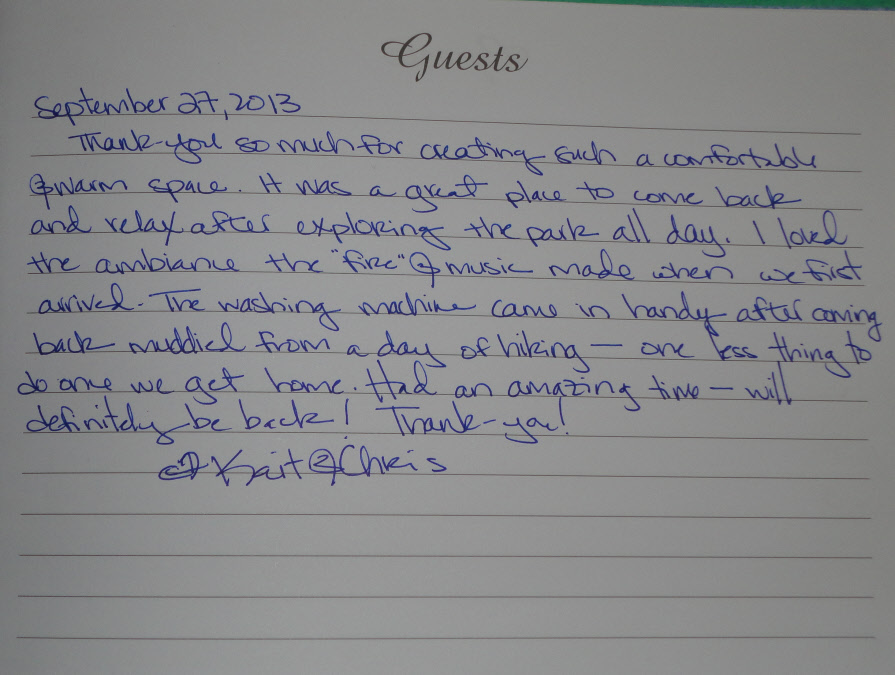 Guests
September 27, 2013
Thank-you so much for creating such a comfortable
& warm space. It was a great place to come back
and relax after exploring the park all day. I loved
the ambiance the "fire" & music made when we first
arrived. The washing machine came in handy after coming
back muddied from a day of hiking — one less thing to
do once we get home. Had an amazing time — will
definitely be back! Thank-you!
Kait & Chris